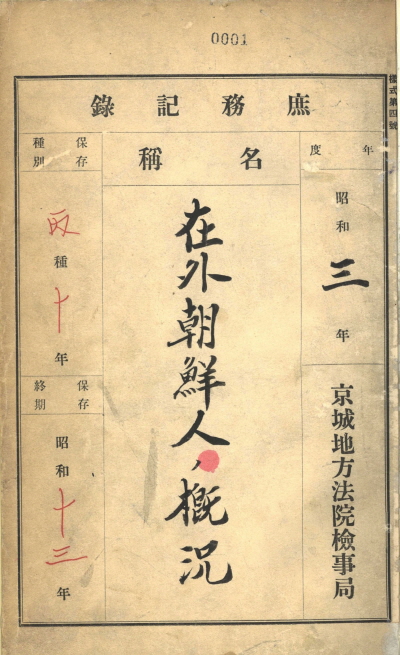 0001
樣式第四號
庶務記錄
年度
昭和三年
京城地方法院檢事局
名稱
在外朝鮮人ノ概況
保存
種別
種十年
保存
終期
昭和十三年